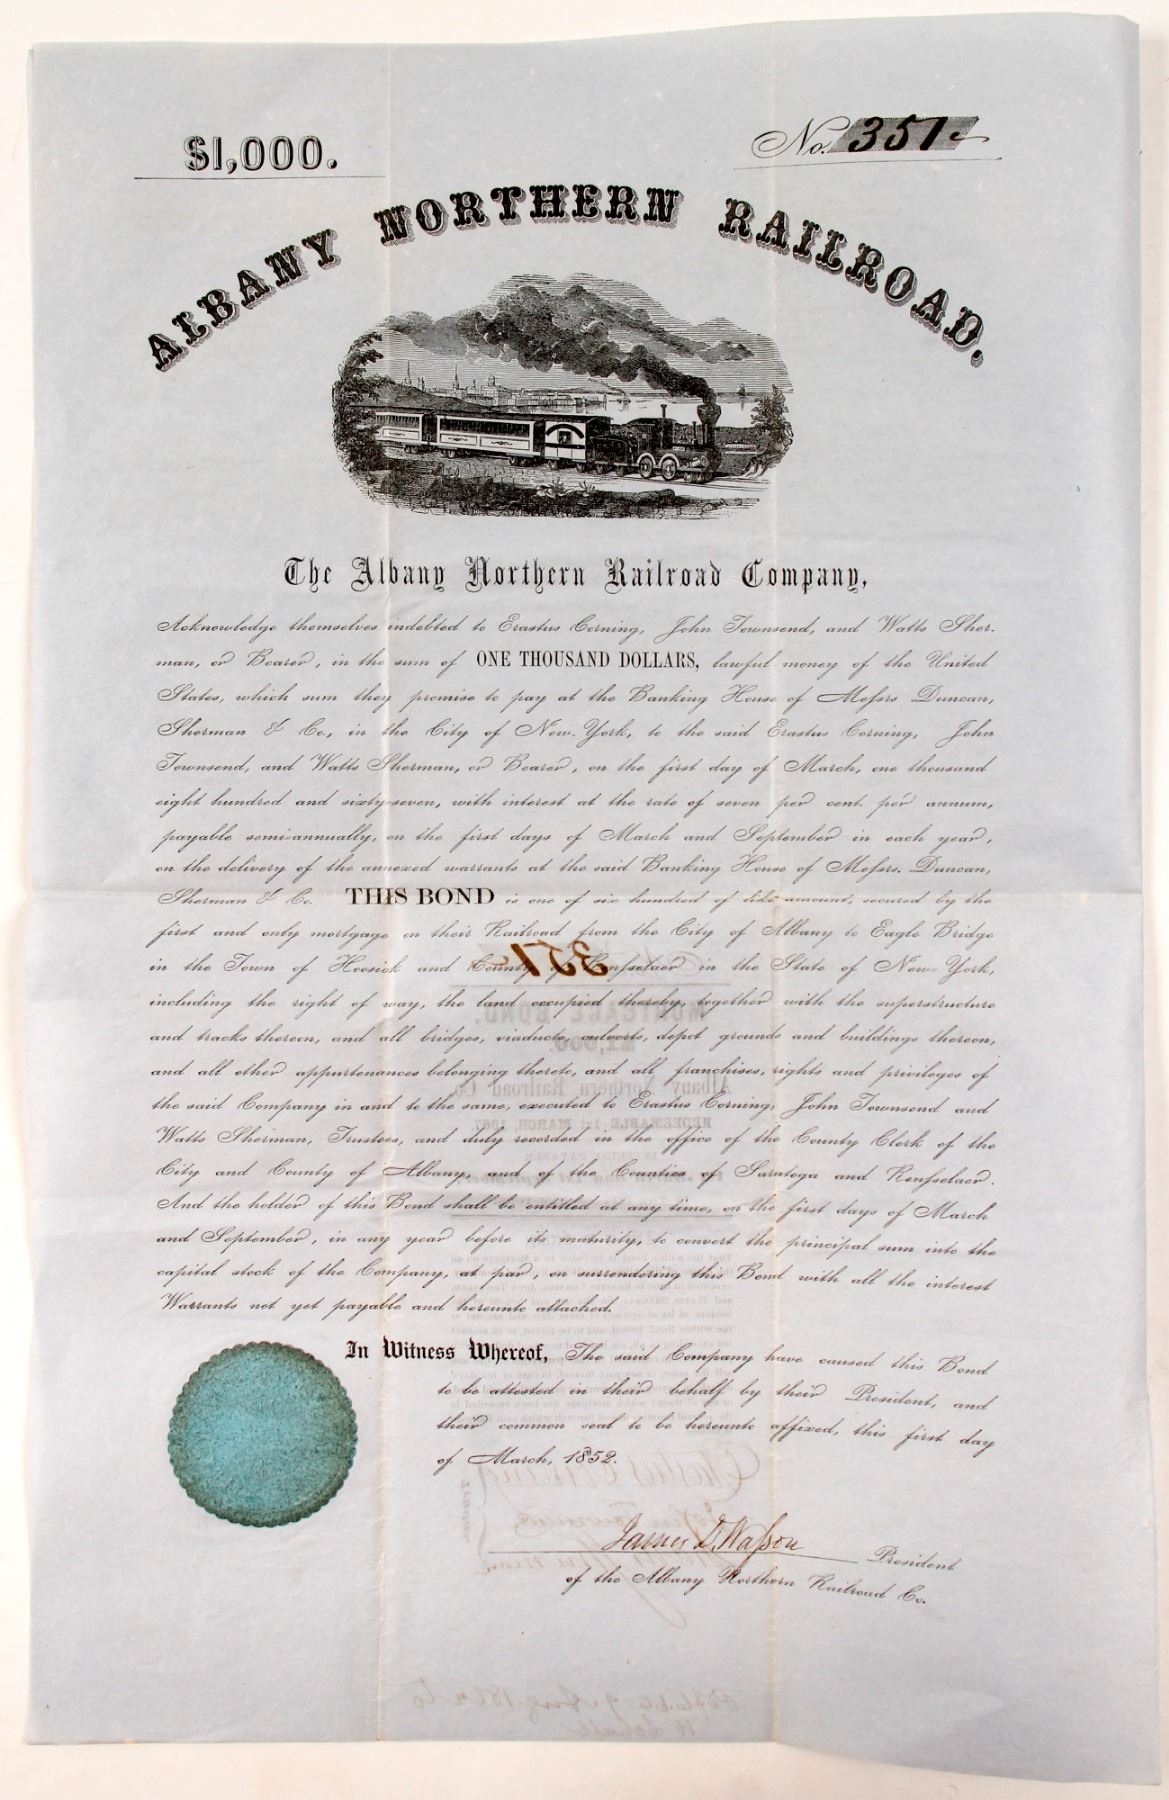 $1,000.
No. 351
ALBANY NORTHERN RAILROAD.
The Albany Northern Railroad Company,
Acknowledge themselves indebted to Erastus Corning, John Townsend, and Watts Sher-
man, or Bearer, in the sum of ONE THOUSAND DOLLARS, lawful money of the United
States, which sum they promise to pay at the Banking House of Messrs Duncan,
Sherman & Co., in the City of New-York, to the said Erastus Corning, John
Townsend, and Watts Sherman, or Bearer, on the first day of March, one thousand
eight hundred and sixty-seven, with interest at the rate of seven per cent. per annum,
payable semi-annually, on the first days of March and September in each year,
on the delivery of the annexed warrants at the said Banking House of Messrs. Duncan,
Sherman & Co. THIS BOND is one of six hundred of like amount, secured by the
first and only mortgage on their Railroad from the City of Albany to Eagle Bridge
in the Town of Hoosick and County of Rensselaer in the State of New-York,
including the right of way, the land occupied thereby, together with the superstructure
and tracks thereon, and all bridges, viaducts, culverts, depot grounds and buildings thereon,
and all other appurtenances belonging thereto, and all franchises, rights and privileges of
the said Company in and to the same, executed to Erastus Corning, John Townsend and
Watts Sherman, Trustees, and duly recorded in the office of the County Clerk of the
City and County of Albany, and of the Counties of Saratoga and Rensselaer.
And the holder of this Bond shall be entitled at any time, on the first days of March
and September, in any year before its maturity, to convert the principal sum into the
capital stock of the Company, at par, on surrendering this Bond with all the interest
Warrants not yet payable and hereunto attached.
In Witness Whereof, The said Company have caused this Bond
to be attested in their behalf by their President, and
their common seal to be hereunto affixed, this first day
of March, 1852.
James D. Wasson President
of the Albany Northern Railroad Co.